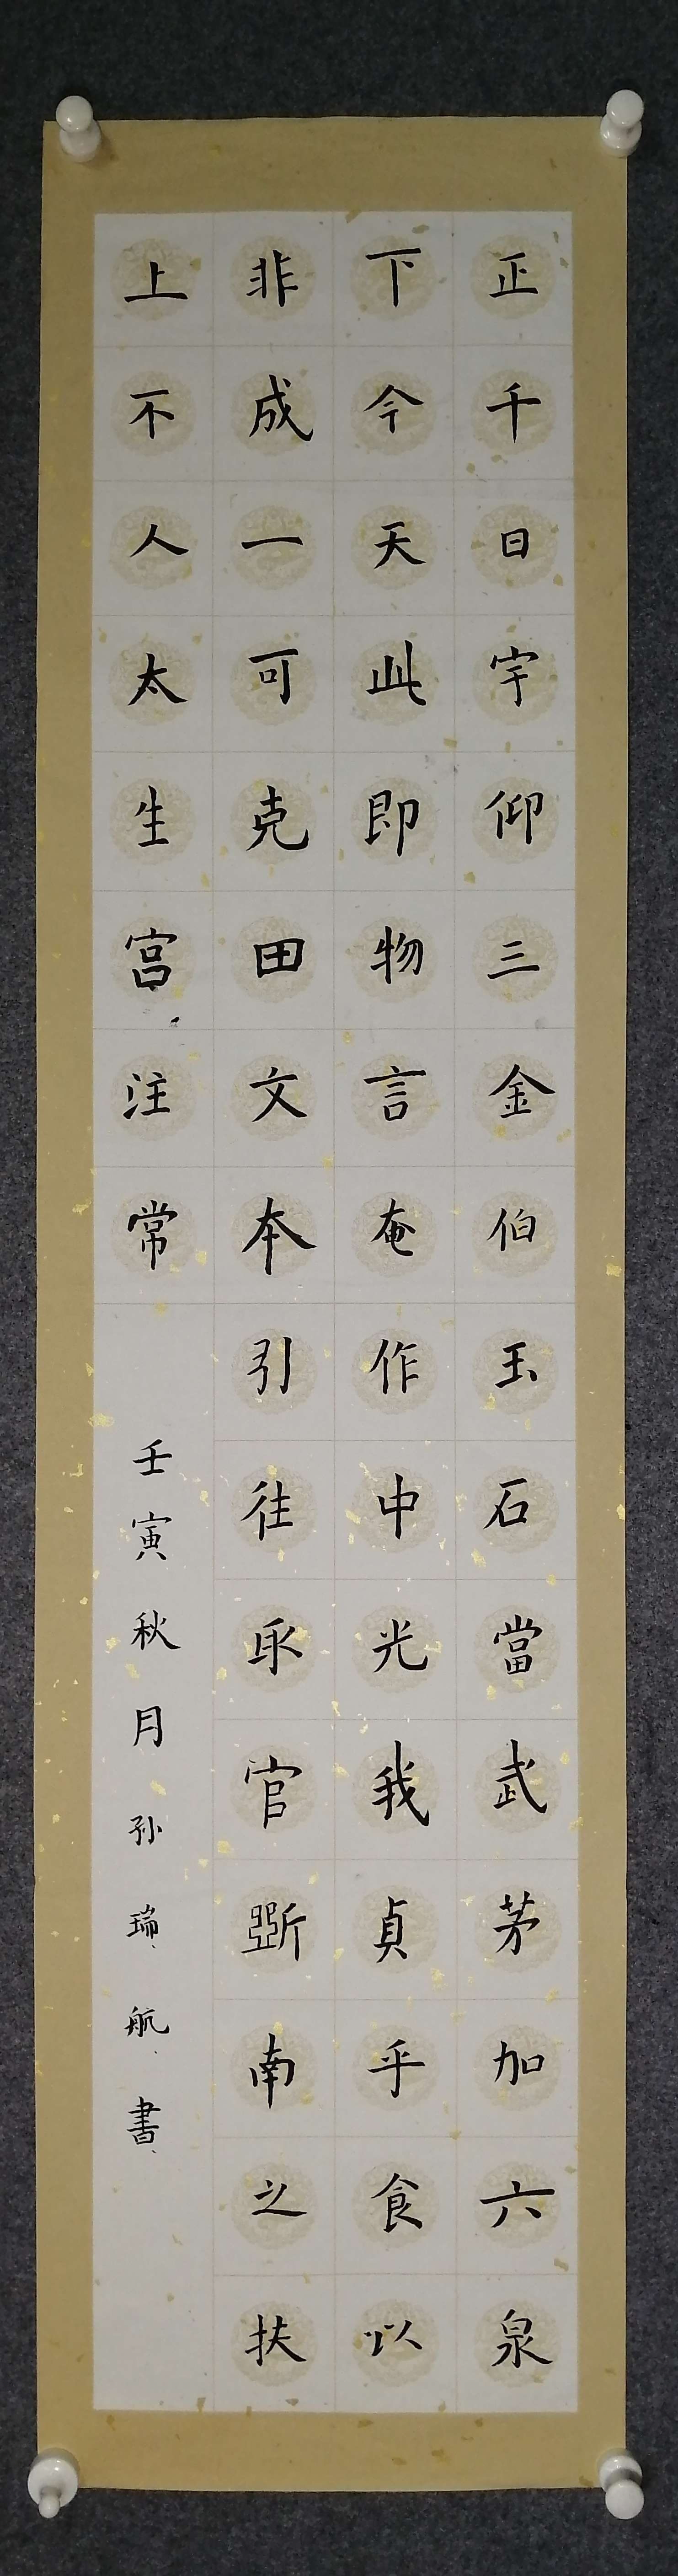 正千日宇仰三金伯玉石當武茅加六泉
下今天此即物言奄作中光我貞乎食以
非成一可克田文本引往承官斲南之扶
上不人太生宫注常
壬寅秋月孙瑞航書